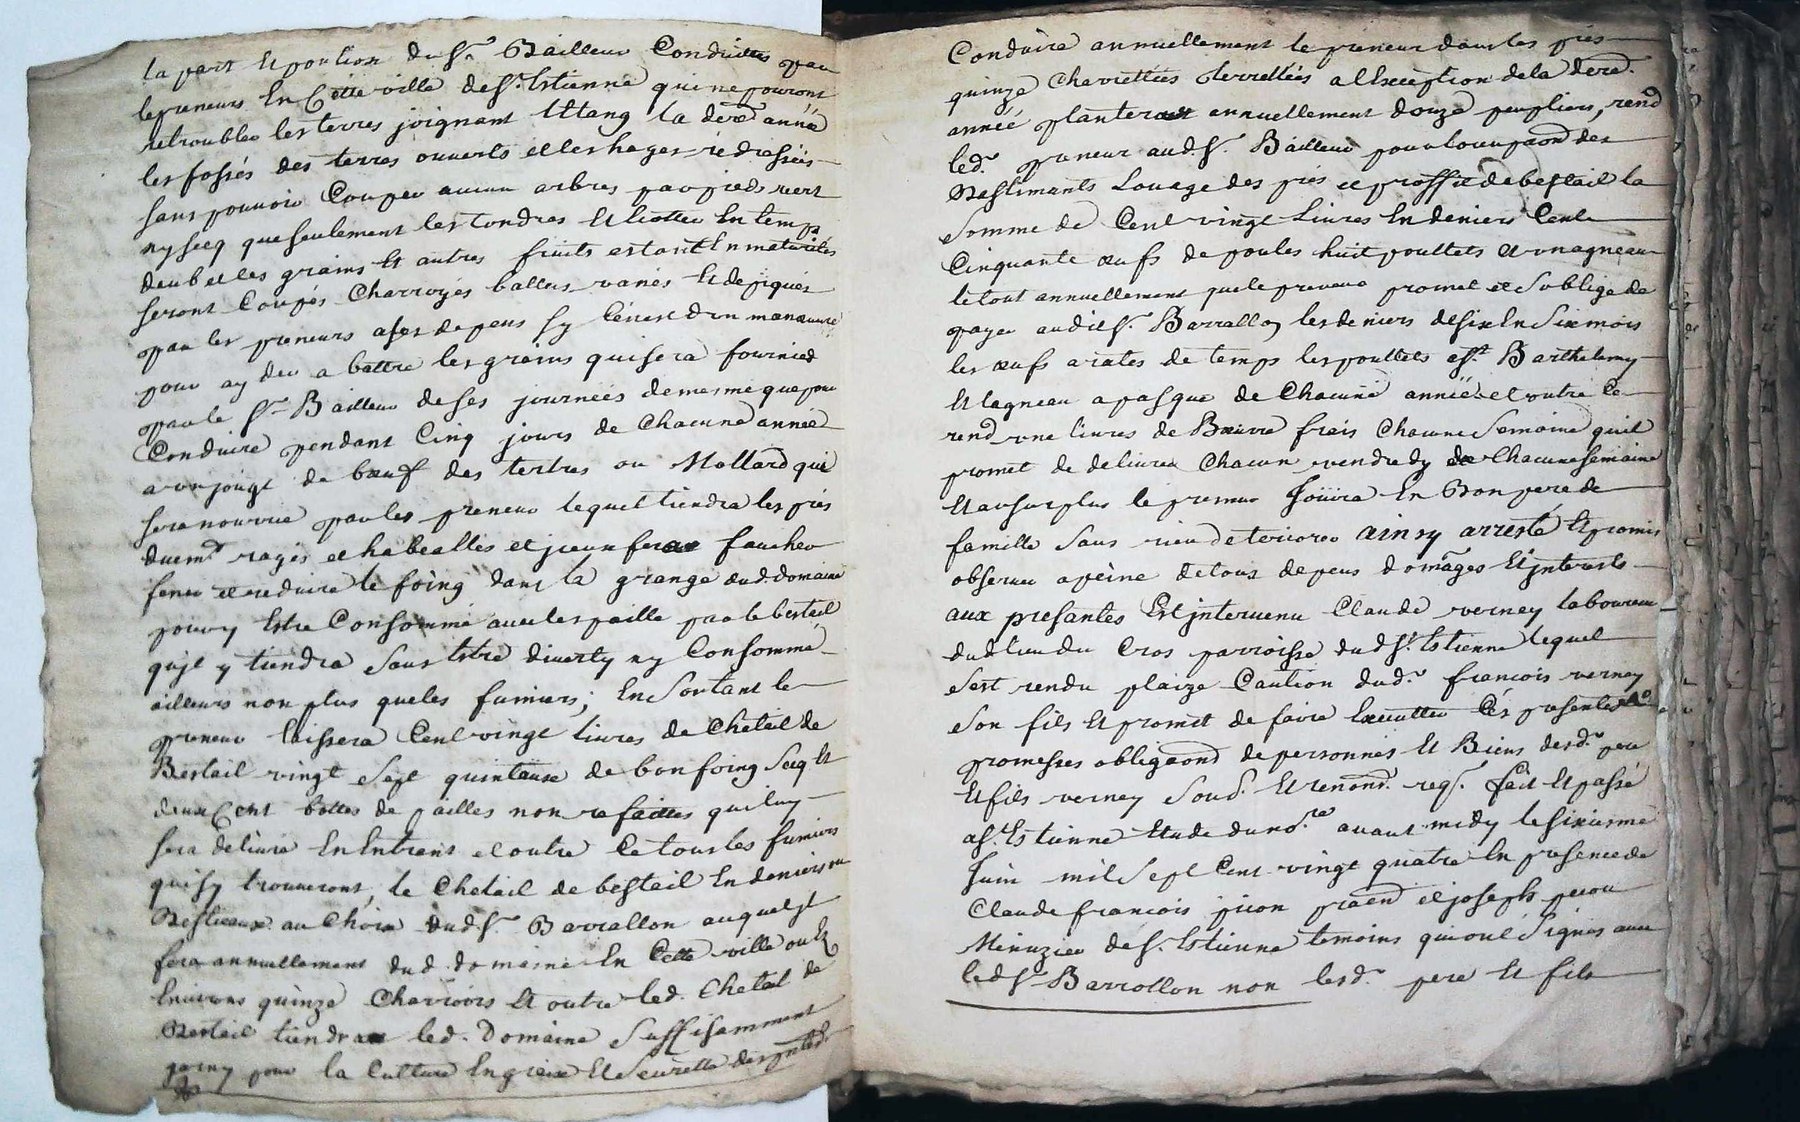 la part et portion du Sr. Bailleur Conduittes par
le preneurs En Cette ville de St. Estienne qui ne pouront
retroubler les terres joignant l'Etang la dere année
les fossés des terres ouverts et les hayes rédressées
sans pouvoir Couper aucun arbres par pieds vert
ny secq que seulement les tondres Et Eiotter En temps
deub et les grains Et autres fruits estant En maturités
seront Coupés Charroyes battus vanés Et depiqués
par les preneurs a ses depens sy Cénest d'un manœuvre
pour ayder a battre les grains qui sera fournied
par le Sr. Bailleur de ses journées de mesme que pour
Conduire pendant Cinq jours de Chacune année
a un jougt de bœuf des tertres ou Mollard qui
sera nourrie par les preneur lequel tiendra les prés
duemt. rages et habealles et jceux fera faucher
fener et reduire le foing dans la grange dud. domaine
pour y Estre Consommé avec les paille par le bestail
qujl y tiendra sans Estre diverty ny Consommé
ailleurs non plus que les fumiers; En Sortant le
preneur laissera Cent vingt livres de Chetail de
Bestail vingt Sept quintaux de bon foing Secq Et
deux Cent bottes de pailles non refaittes qui luy
sera délivré En Entrant et outre Ce tous les fumiers
qui sy trouveront, le Chetail de bestail En deniers ou
Bestieaux au Choix dud. Sr. Barrallon auquel jl
fera annuellement dud. domaine En Cette ville ou Es
Environs quinze Charrois Et outre led. Chetail de
Bestail tiendra led. Domaine Suffisamment
garny pour la Culture Engrese Et Seurette des pntes
Conduire annuellement le preneur dans les prés
quinze Charrettées terrellées a l'Exception de la dere.
année plantera annuellement douze peupliers, rend
led. preneur aud. Sr. Bailleur pour louupaond des
Bestimants Louage des prés et proffit de bestail la
Somme de Cent vingt Livres En deniers Cent
Cinquante œufs de poules huit poullets et un agneau
le tout annuellement que le preneur promet et S'oblige de
payer audit Sr. Barrallon les deniers de six En Six mois
les œufs a rates de temps les poullets a St. Barthelemy
Et l'agneau a pasque de Chacune année et outre Ce
rend une livres de Bœurre frais Chacune Semaine qu'il
promet de delivrer Chacun vendredy de Chacune Semaine
Et au surplus le preneur Joüira En Bon pere de
famille sans rien deteriorer ainsy arresté Et promis
observer a péine de tous depens domages Et jnterests
aux presantes Est jntervenu Claude verney laboureur
dud. lieu du Cros parroisse dud. St. Estienne lequel
s'est rendu plaige Caution dud. francois verney
son fils Et promet de faire Executter Cés presentes
promesses obligaond de personnes Et Biens desd. pere
Et fils verney Soud. Et renond. reqs. fait Et passé
a St. Estienne Etude du nore. avant midy le sixiesme
Juin mil Sept Cent vingt quatre En presence de
Claude francois pion praend et joseph
Menuzier de St. Estienne temoins qui ont Signés avec
led. Sr. Barrollon non lesd. pere Et fils